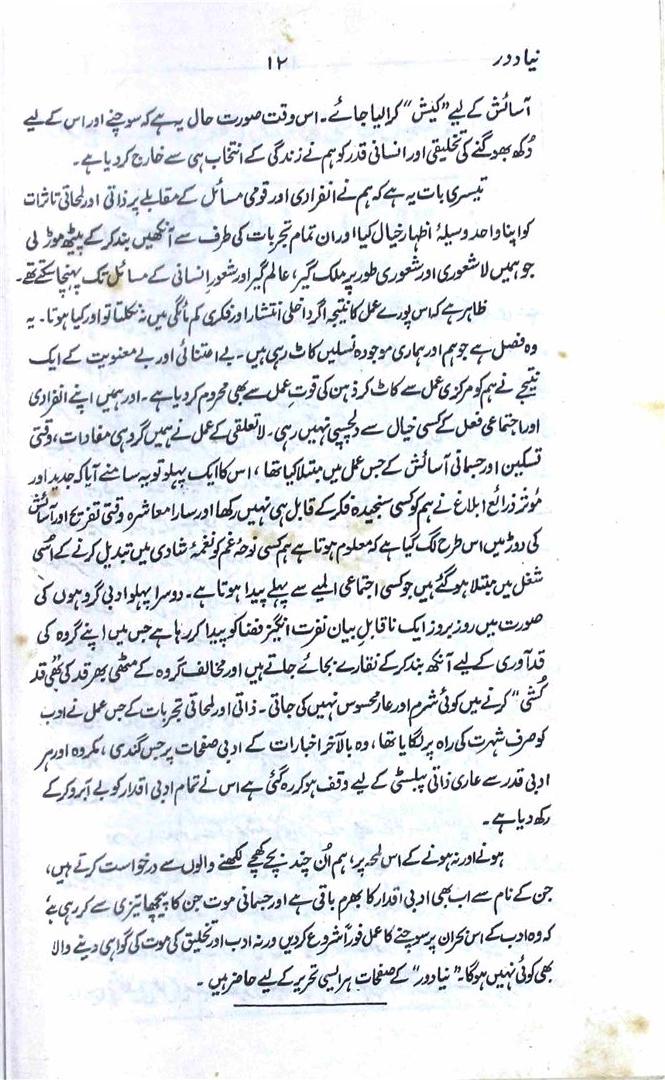 نیا دور
۱۲
آسائش کے لیے ”کیش“ کرالیا جائے۔ اس وقت صورت حال یہ ہے کہ سوچنے اور اس کے لیے
دُکھ بھوگنے کی تخلیقی اور انسانی قدر کو ہم نے زندگی کے انتخاب ہی سے خارج کر دیا ہے۔
تیسری بات یہ ہے کہ ہم نے انفرادی اور قومی مسائل کے مقابلے پر ذاتی اور لمحاتی تاثرات
کو اپنا واحد وسیلۂ اظہار خیال کیا اور ان تمام تجربات کی طرف سے آنکھیں بند کر کے پیٹھ موڑ لی
جو ہمیں لاشعوری اور شعوری طور پر ملک گیر، عالم گیر اور شعورِ انسانی کے مسائل تک پہنچا سکتے تھے۔
ظاہر ہے کہ اس پورے عمل کا نتیجہ اگر داخلی انتشار اور فکری کم مائگی میں نہ نکلتا تو اور کیا ہوتا۔ یہ
وہ فصل ہے جو ہم اور ہماری موجودہ نسلیں کاٹ رہی ہیں۔ بے اعتنائی اور بے معنویت کے ایک
نتیجے نے ہم کو مرکزی عمل سے کاٹ کر ذہن کی قوتِ عمل سے بھی محروم کر دیا ہے۔ اور ہمیں اپنے انفرادی
اور اجتماعی فعل کے کسی خیال سے دلچسپی نہیں رہی۔ لاتعلقی کے عمل نے ہمیں گروہی مفادات، وقتی
تسکین اور جسمانی آسائش کے جس عمل میں مبتلا کیا تھا، اس کا ایک پہلو تو یہ سامنے آیا کہ جدید اور
مُوثر ذرائع ابلاغ نے ہم کو کسی سنجیدہ فکر کے قابل ہی نہیں رکھا اور سارا معاشرہ وقتی تفریح اور آسائش
کی دوڑ میں اس طرح لگ گیا ہے کہ معلوم ہوتا ہے ہم کسی نوحۂ غم کو نغمۂ شادی میں تبدیل کرنے کے اُسی
شغل میں مبتلا ہو گئے ہیں جو کسی اجتماعی المیے سے پہلے پیدا ہوتا ہے۔ دوسرا پہلو ادبی گروہوں کی
صورت میں روز بروز ایک ناقابلِ بیان نفرت انگیز فضا کو پیدا کر رہا ہے جس میں اپنے گروہ کی
قد آوری کے لیے آنکھ بند کر کے نقارے بجائے جاتے ہیں اور مخالف گروہ کے مٹھی بھر قد کی بھی ”قد
کُشی“ کرنے میں کوئی شرم اور عار محسوس نہیں کی جاتی۔ ذاتی اور لمحاتی تجربات کے جس عمل نے ادب
کو صرف شہرت کی راہ پر لگایا تھا، وہ بالآخر اخبارات کے ادبی صفحات پر جس گندی، مکروہ اور ہر
ادبی قدر سے عاری ذاتی پبلسٹی کے لیے وقف ہو کر رہ گئی ہے اس نے تمام ادبی اقدار کو بے آبرو کر کے
رکھ دیا ہے۔
ہونے اور نہ ہونے کے اس لمحہ پر، ہم اُن چند بچے کھچے لکھنے والوں سے درخواست کرتے ہیں،
جن کے نام سے اب بھی ادبی اقدار کا بھرم باقی ہے اور جسمانی موت جن کا پیچھا تیزی سے کر رہی ہے،
کہ وہ ادب کے اس بحران پر سوچنے کا عمل فوراً شروع کر دیں ورنہ ادب اور تخلیق کی موت کی گواہی دینے والا
بھی کوئی نہیں ہوگا۔ ”نیا دور“ کے صفحات ہر ایسی تحریر کے لیے حاضر ہیں۔